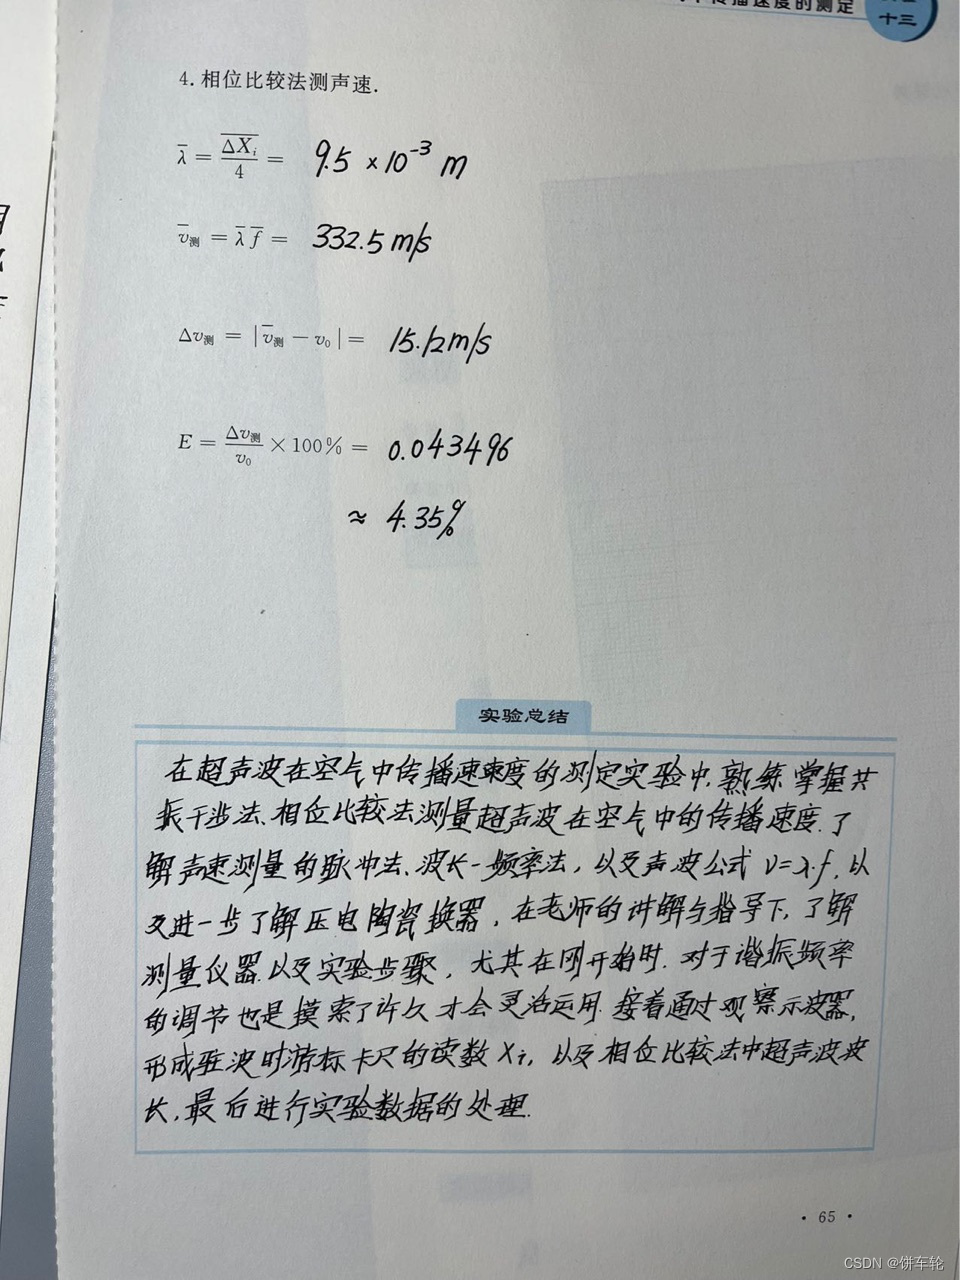 传播速度的测定
十三
4.相位比较法测声速.
λ̄ = ΔXᵢ/4 = 9.5 ×10⁻³ m
v̄测 = λ̄ f̄ = 332.5 m/s
Δv测 = |v̄测 − v₀| = 15.12m/s
E = Δv测/v₀ ×100% = 0.043496
≈ 4.35%
实验总结
在超声波在空气中传播速度的测定实验中,熟练掌握共
振干涉法、相位比较法测量超声波在空气中的传播速度.了
解声速测量的脉冲法、波长-频率法,以及声波公式 v=λ·f,以
及进一步了解压电陶瓷换器,在老师的讲解与指导下,了解
测量仪器以及实验步骤,尤其在刚开始时.对于谐振频率
的调节也是摸索了许久才会灵活运用.接着通过观察示波器,
形成驻波时游标卡尺的读数 Xi,以及相位比较法中超声波波
长,最后进行实验数据的处理.
· 65 ·
CSDN @饼车轮